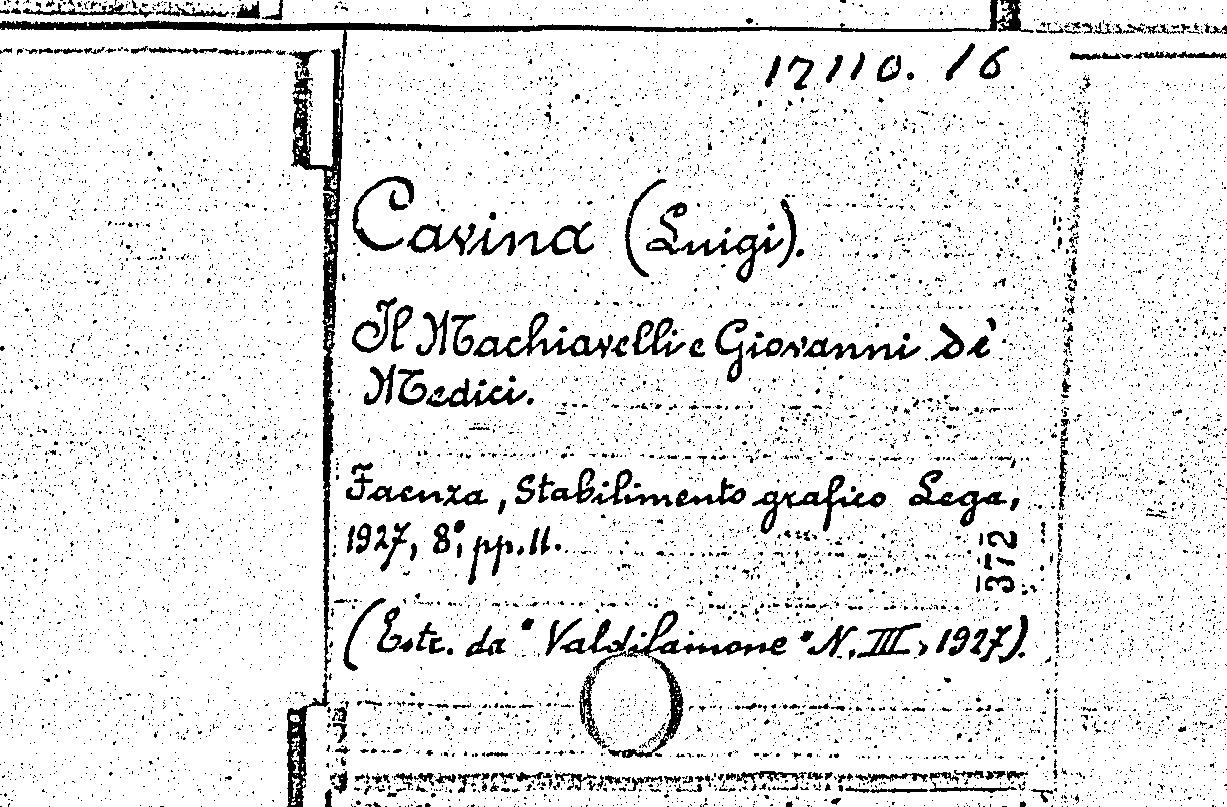 17110. 16
Cavina (Luigi).
Il Machiavelli e Giovanni de'
Medici.
Faenza, Stabilimento grafico Lega,
1927, 8°, pp. 11.
372
(Estr. da "Valdilamone" N. III, 1927).